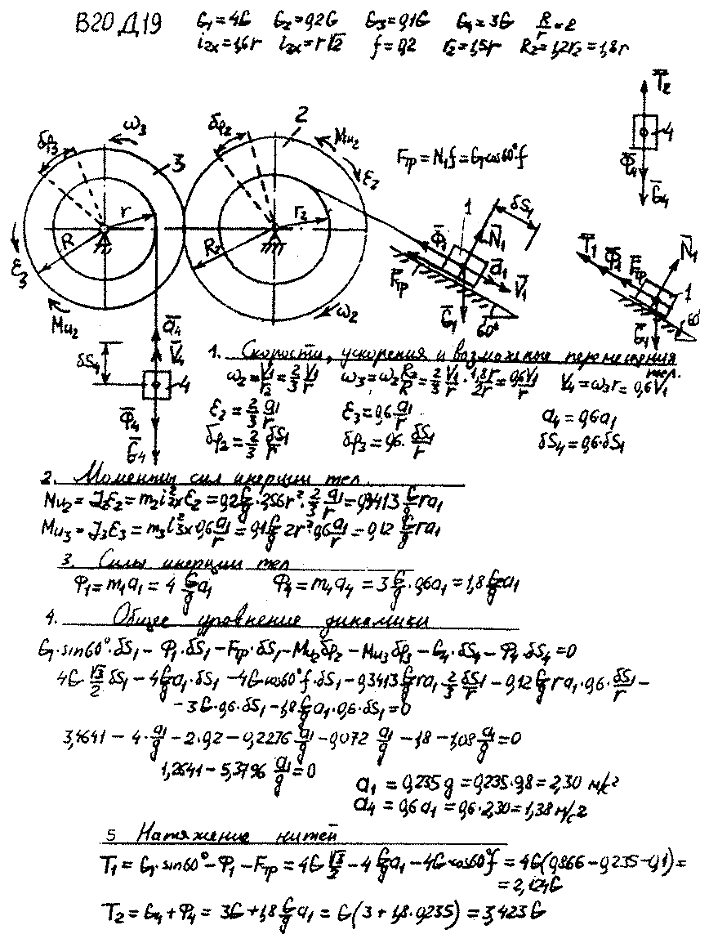 В20 Д19 G₁=4G G₂=0,2G G₃=0,1G G₄=3G R/r=2
i₂ₓ=1,6r i₂ₓ=r√2 f=0,2 r₂=1,5r R₂=1,2r₂=1,8r
T̄₂
4
Φ̄₄
Ḡ₄
δφ₃ ω₃ δφ₂ 2 Mᵤ₂
3 ε₂
Fтр=N₁f=G₁cos60°f
r R r₂ R₂
ε₃ Mᵤ₂ ω₂
1 δS₁ N̄₁ Φ̄₁ ā₁ V̄₁ F̄тр Ḡ₁ 60°
T̄₁ Φ̄₁ F̄тр N̄₁ 1 Ḡ₁ 60°
ā₄ V̄₄ δS₄ 4 Φ̄₄ Ḡ₄
1. Скорости, ускорения и возможные перемещения тел.
ω₂=V₁/r₂=2/3 V₁/r ω₃=ω₂R₂/R=2/3 V₁/r·1,8r/2r=0,6V₁/r V₄=ω₃r=0,6V₁
ε₂=2/3 a₁/r ε₃=0,6 a₁/r a₄=0,6a₁
δφ₂=2/3 δS₁/r δφ₃=0,6·δS₁/r δS₄=0,6·δS₁
2. Моменты сил инерции тел.
Mᵤ₂=J₂ε₂=m₂i²₂ₓε₂=0,2G/g·2,56r²·2/3 a₁/r=0,3413 G/g ra₁
Mᵤ₃=J₃ε₃=m₃i²₃ₓ0,6a₁/r=0,1G/g 2r²0,6a₁/r=0,12 G/g ra₁
3. Силы инерции тел
Φ₁=m₁a₁=4 G/g a₁ Φ₄=m₄a₄=3G/g·0,6a₁=1,8G/g a₁
4. Общее уровнение динамики
G₁·sin60°·δS₁−Φ₁·δS₁−Fтр·δS₁−Mᵤ₂δφ₂−Mᵤ₃δφ₃−G₄·δS₄−Φ₄·δS₄=0
4G √3/2 δS₁−4G/g a₁·δS₁−4G cos60°f·δS₁−0,3413G/g ra₁·2/3 δS₁/r−0,12G/g ra₁·0,6·δS₁/r−
−3G·0,6·δS₁−1,8G/g a₁·0,6·δS₁=0
3,4641−4·a₁/g−2·0,2−0,2276 a₁/g−0,072 a₁/g−1,8−1,08a₁/g=0
1,2641−5,3796 a₁/g=0
a₁=0,235g=0,235·9,8=2,30 м/с²
a₄=0,6a₁=0,6·2,30=1,38м/с²
5 Натяжение нитей
T₁=G₁·sin60°−Φ₁−Fтр=4G √3/2−4G/g a₁−4G cos60°f=4G(0,866−0,235−0,1)=
=2,124G
T₂=G₄+Φ₄=3G+1,8G/g a₁=G(3+1,8·0,235)=3,423G